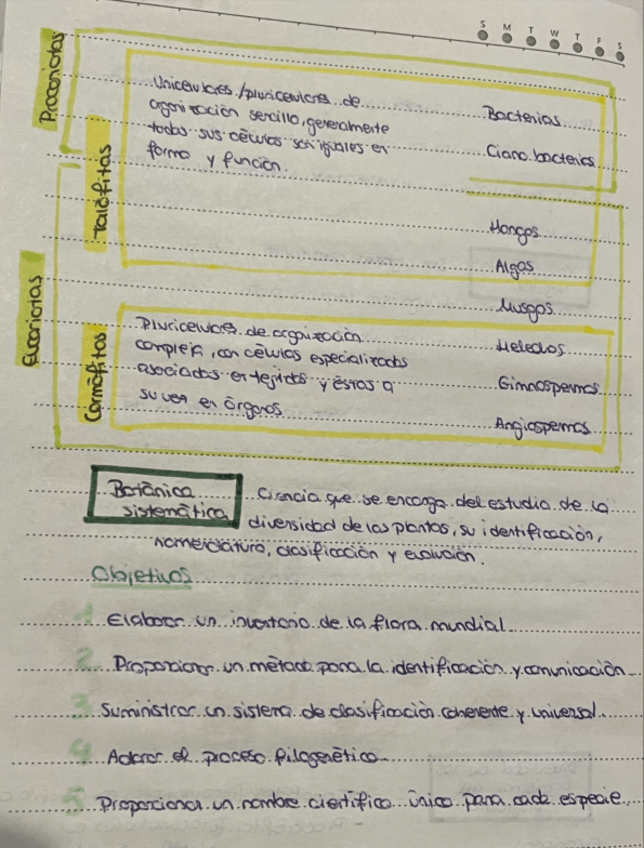 S M T W T F S
Procariotas
Unicelulares/pluricelulares de
organización sencilla, generalmente
todas sus células son iguales en
forma y función.
Bacterias
Cianobacterias
Talófitas
Hongos
Algas
Musgos
Eucariotas
Cormófitas
Pluricelulares de organización
compleja, con células especializadas
asociadas en tejidos y éstas a
su vez en órganos
Helechos
Gimnospermas
Angiospermas
Botánica
sistemática
Ciencia que se encarga del estudio de la
diversidad de las plantas, su identificación,
nomenclatura, clasificación y evolución.
Objetivos
1 Elaborar un inventario de la flora mundial
2 Proporcionar un método para la identificación y comunicación
3 Suministrar un sistema de clasificación coherente y universal
4 Aclarar el proceso filogenético
5 Proporcionar un nombre científico único para cada especie